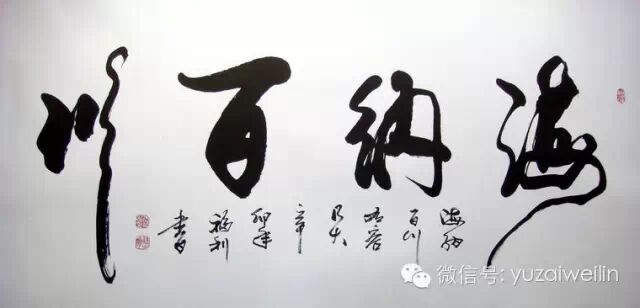 海纳百川
海纳
百川
有容
乃大
辛
卯年
福利
书
微信号: yuzaiweilin